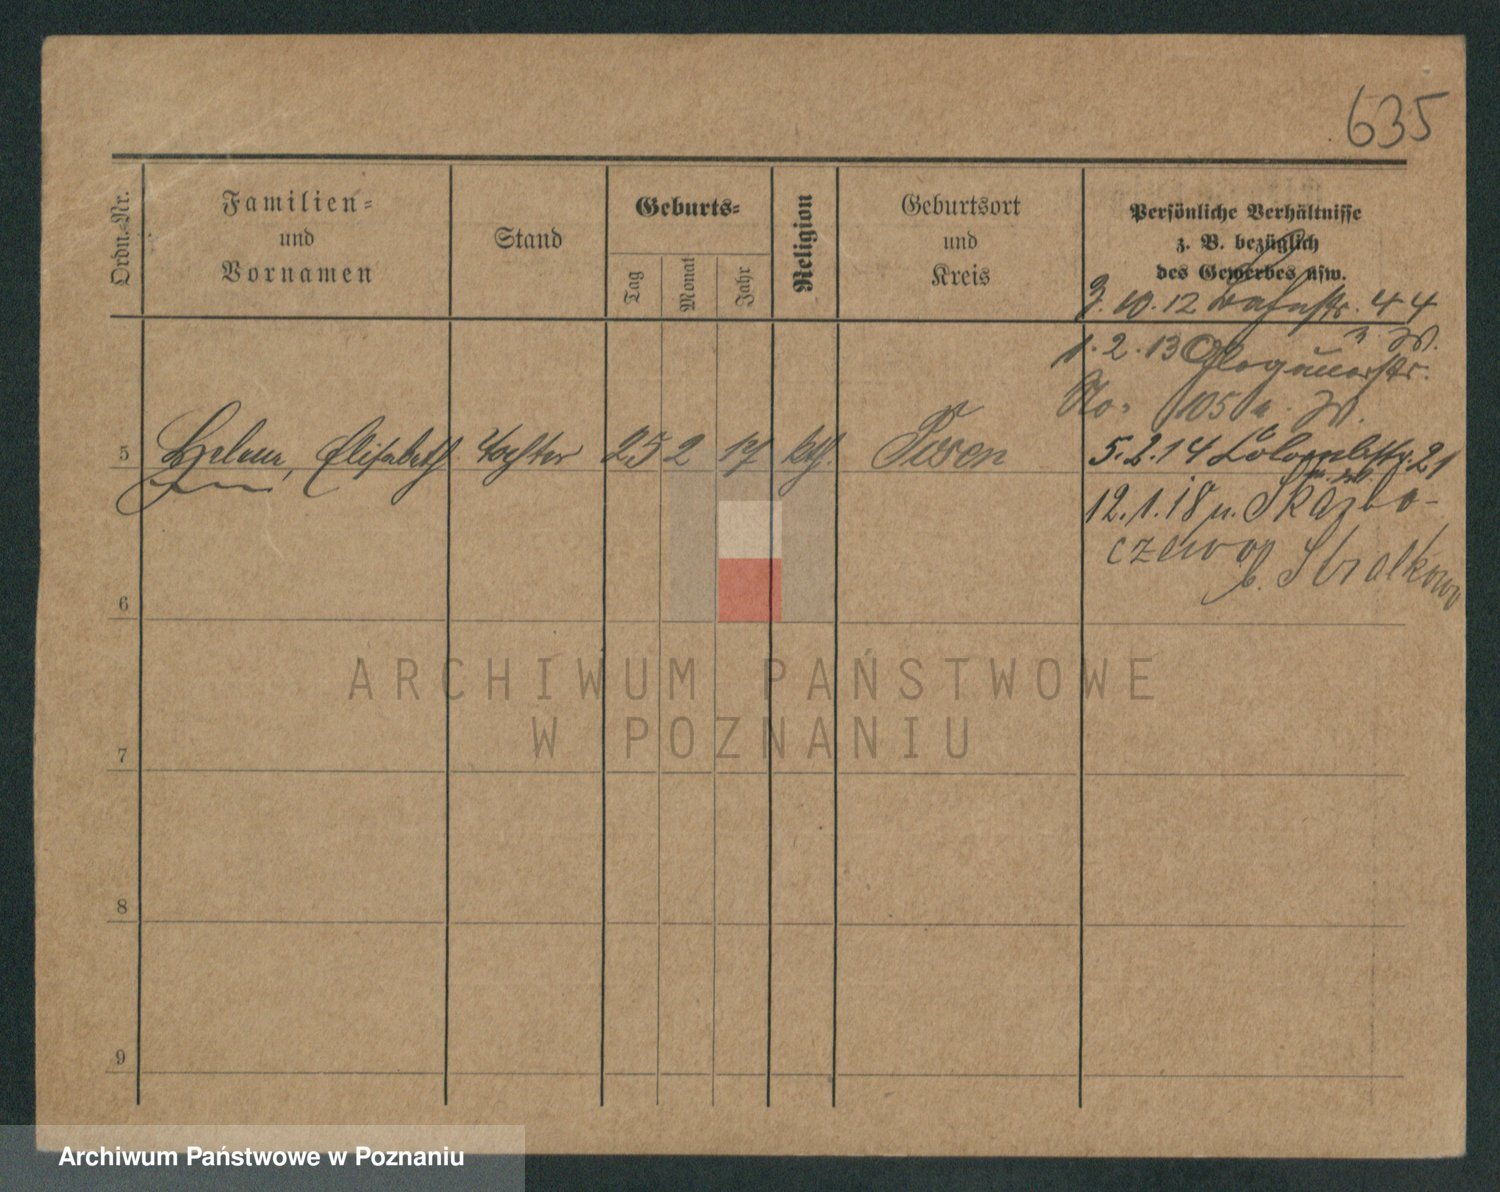 635
Ordn.-Nr.
Familien-
und
Vornamen
Stand
Geburts-
Tag
Monat
Jahr
Religion
Geburtsort
und
Kreis
Persönliche Verhältnisse
z. B. bezüglich
des Gewerbes usw.
3.10.12 44
1.2.13 Glogauerstr.
No. 105a. W.
5 Helene, Elisabeth Tochter 25 2 17 kth. Posen
5.2.14 21
12.1.18 n. Skarbo-
czewo
b. Stralkowo
6
7
8
9
ARCHIWUM PAŃSTWOWE
W POZNANIU
Archiwum Państwowe w Poznaniu